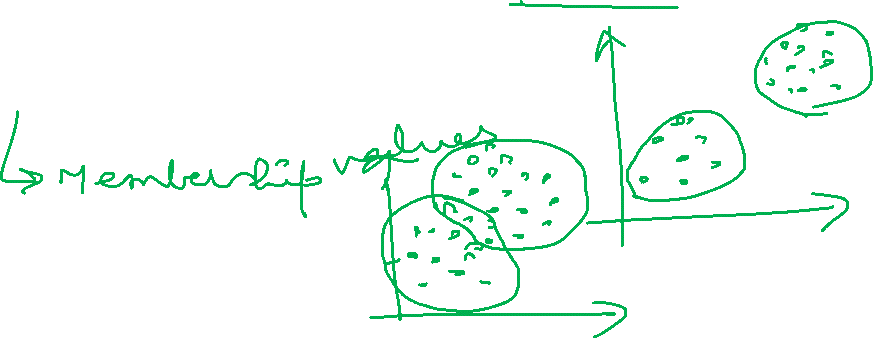 Membership values